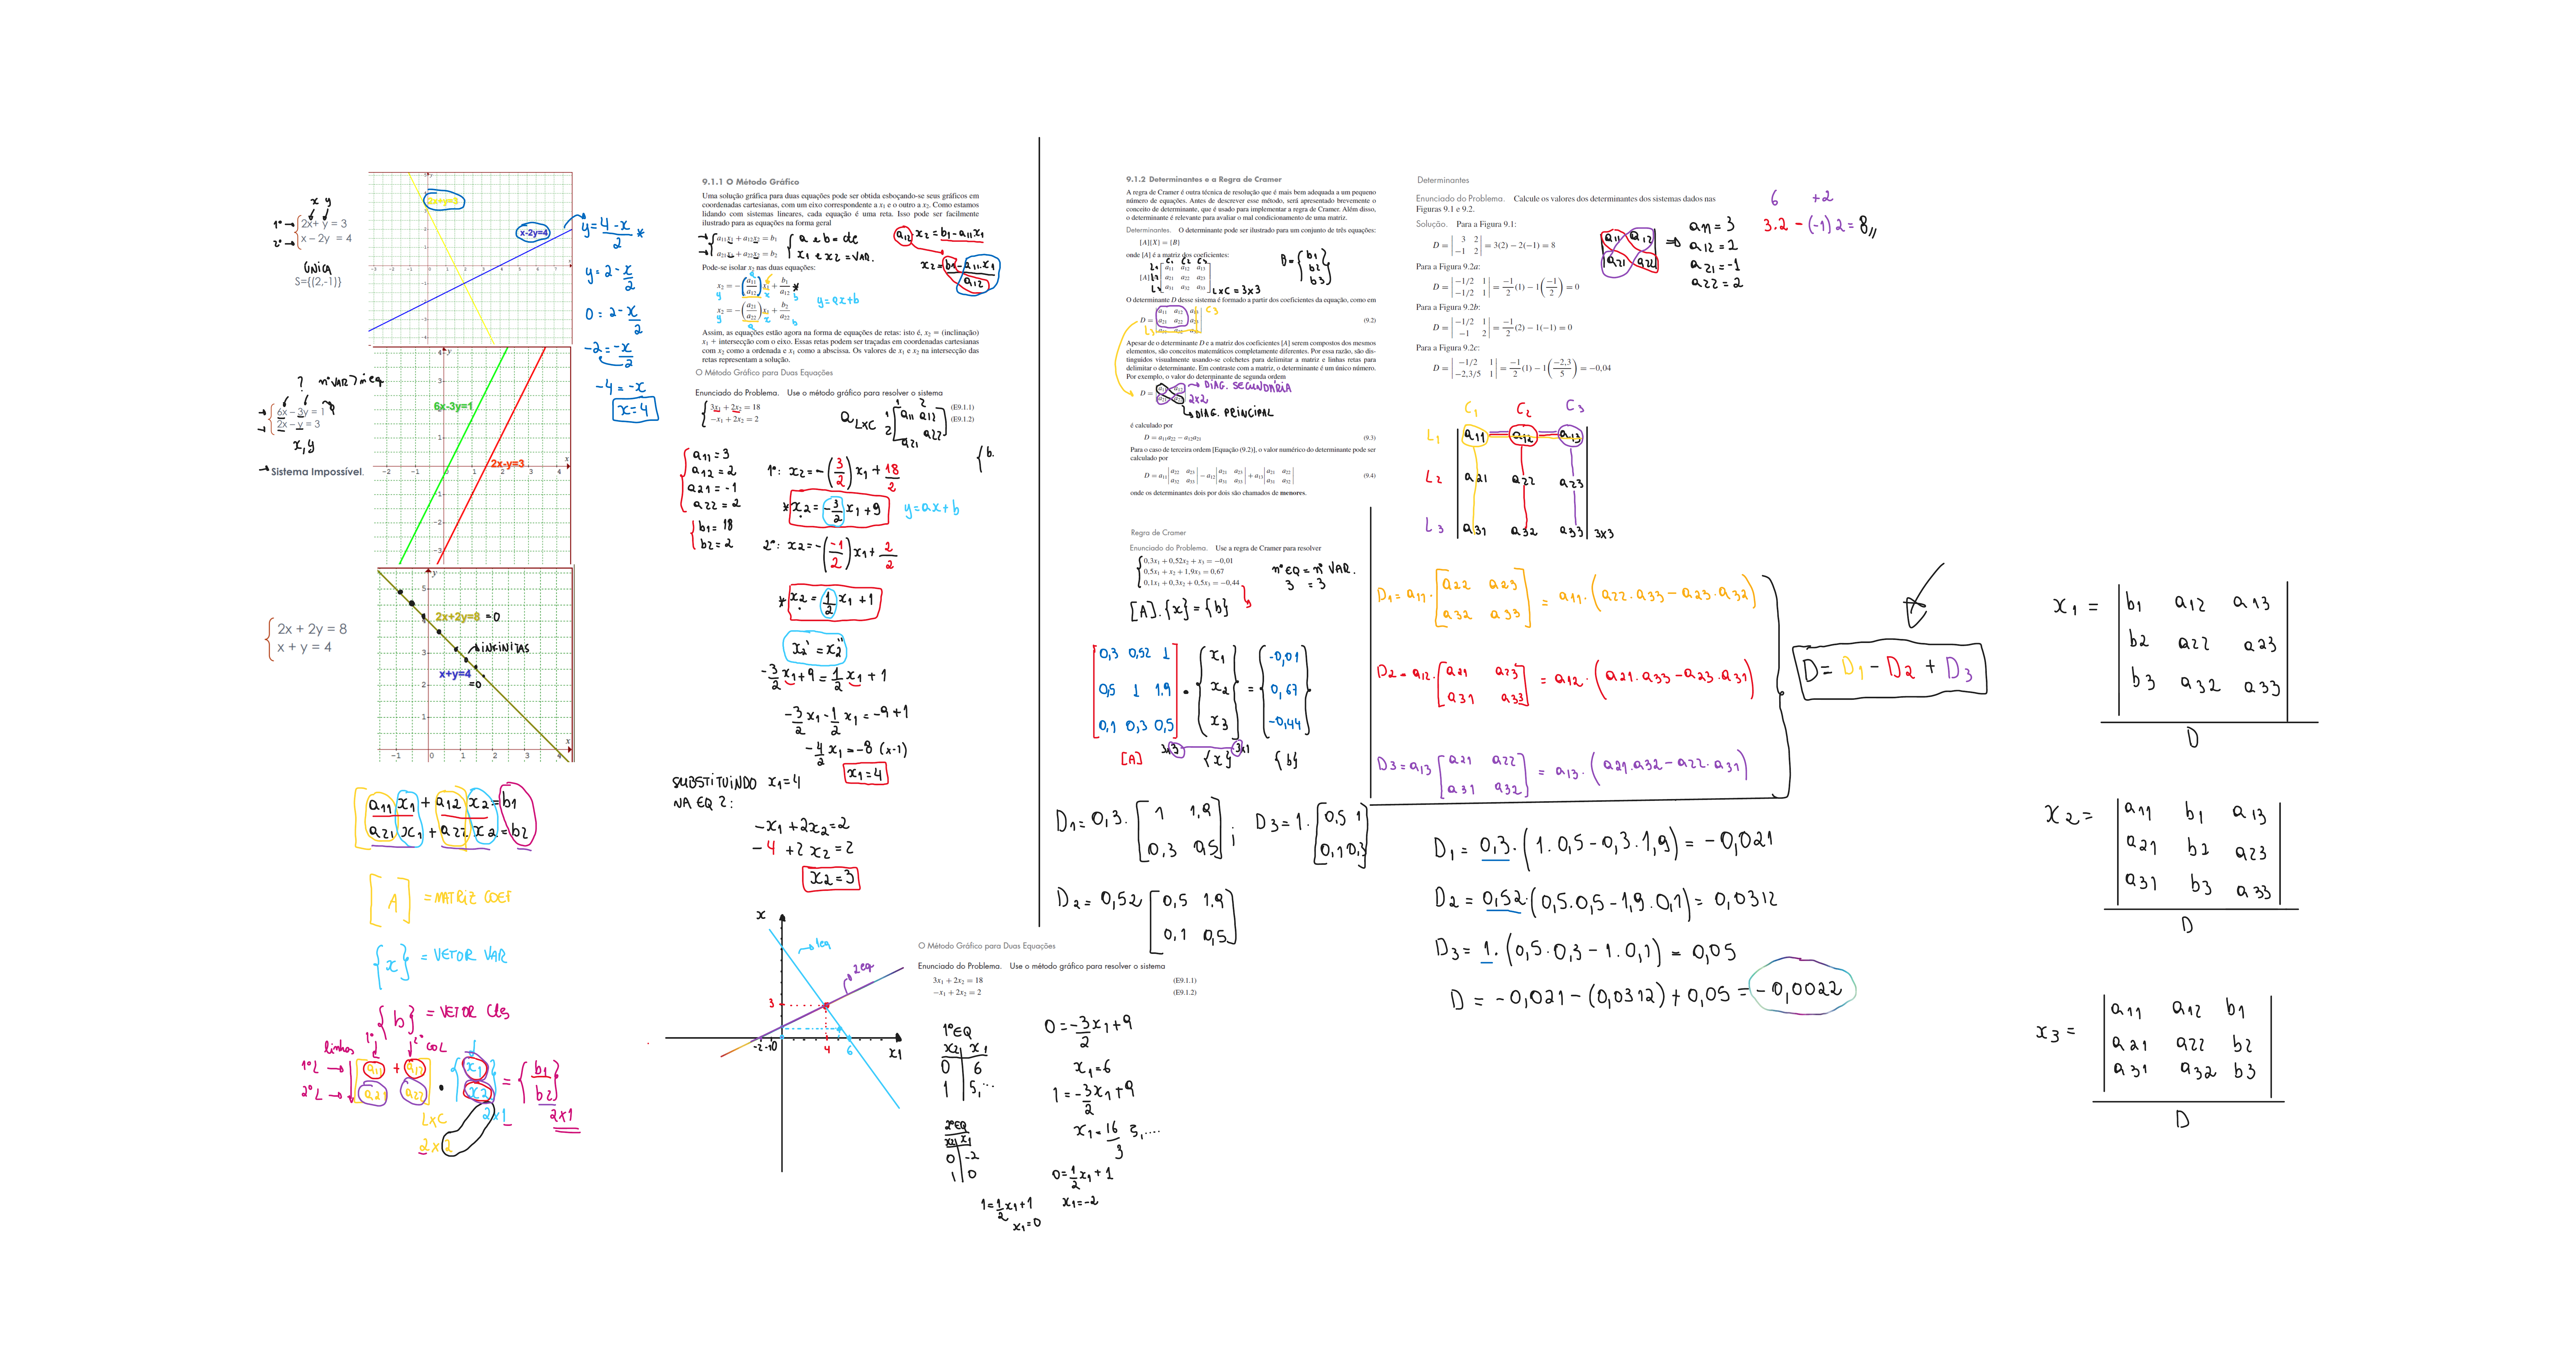 x y
1º → 2x + y = 3
2º → x – 2y = 4
ÚNICA
S={(2,-1)}
2x+y=3
x-2y=4
y = 4 - x / 2 *
y = 2 - x/2
0 = 2 - x/2
-2 = -x/2
-4 = -x
x = 4
? nº VAR > nº eq
6x – 3y = 1
2x – y = 3
x, y
→ Sistema Impossível.
6x-3y=1
2x-y=3
2x + 2y = 8
x + y = 4
2x+2y=8 = 0
INFINITAS
x+y=4
= 0
a11 x1 + a12 x2 = b1
a21 x1 + a22 x2 = b2
[A] = MATRIZ COEF
{x} = VETOR VAR
{b} = VETOR Ctes
linhas 1º 2º COL
1ºL → a11 + a12 . x1 = b1
2ºL → a21 a22 x2 b2
LxC 2x1 2x1
2x2
9.1.1 O Método Gráfico
Uma solução gráfica para duas equações pode ser obtida esboçando-se seus gráficos em
coordenadas cartesianas, com um eixo correspondente a x₁ e o outro a x₂. Como estamos
lidando com sistemas lineares, cada equação é uma reta. Isso pode ser facilmente
ilustrado para as equações na forma geral
a₁₁x₁ + a₁₂x₂ = b₁
a₂₁x₁ + a₂₂x₂ = b₂
a e b = cte
x1 e x2 = VAR.
a12 x2 = b1 - a11 x1
x2 = b1 - a11.x1 / a12
Pode-se isolar x₂ nas duas equações:
x₂ = -(a₁₁/a₁₂)x₁ + b₁/a₁₂ *
y a x b
y = ax + b
x₂ = -(a₂₁/a₂₂)x₁ + b₂/a₂₂
y a x b
Assim, as equações estão agora na forma de equações de retas: isto é, x₂ = (inclinação)
x₁ + intersecção com o eixo. Essas retas podem ser traçadas em coordenadas cartesianas
com x₂ como a ordenada e x₁ como a abscissa. Os valores de x₁ e x₂ na intersecção das
retas representam a solução.
O Método Gráfico para Duas Equações
Enunciado do Problema. Use o método gráfico para resolver o sistema
3x₁ + 2x₂ = 18 (E9.1.1)
−x₁ + 2x₂ = 2 (E9.1.2)
a LxC 1 2
1 a11 a12
2 a21 a22
{ b.
a11 = 3
a12 = 2
a21 = -1
a22 = 2
b1 = 18
b2 = 2
1º: x2 = -(3/2) x1 + 18/2
* x2 = -3/2 x1 + 9
y = ax + b
2º: x2 = -(-1/2) x1 + 2/2
* x2 = 1/2 x1 + 1
x2' = x2''
-3/2 x1 + 9 = 1/2 x1 + 1
-3/2 x1 - 1/2 x1 = -9 + 1
-4/2 x1 = -8 (x-1)
x1 = 4
SUBSTITUINDO x1 = 4
NA EQ 2:
-x1 + 2x2 = 2
-4 + 2x2 = 2
x2 = 3
x
1eq
2eq
3
-2 -1 0 4 6 x1
O Método Gráfico para Duas Equações
Enunciado do Problema. Use o método gráfico para resolver o sistema
3x₁ + 2x₂ = 18 (E9.1.1)
−x₁ + 2x₂ = 2 (E9.1.2)
1º EQ
x2 x1
0 6
1 5,...
0 = -3/2 x1 + 9
x1 = 6
1 = -3/2 x1 + 9
x1 = 16/3 5,....
2º EQ
x2 x1
0 -2
1 0
0 = 1/2 x1 + 1
x1 = -2
1 = 1/2 x1 + 1
x1 = 0
9.1.2 Determinantes e a Regra de Cramer
A regra de Cramer é outra técnica de resolução que é mais bem adequada a um pequeno
número de equações. Antes de descrever esse método, será apresentado brevemente o
conceito de determinante, que é usado para implementar a regra de Cramer. Além disso,
o determinante é relevante para avaliar o mal condicionamento de uma matriz.
Determinantes. O determinante pode ser ilustrado para um conjunto de três equações:
[A]{X} = {B}
onde [A] é a matriz dos coeficientes:
C1 C2 C3
[A]
a₁₁ a₁₂ a₁₃
a₂₁ a₂₂ a₂₃
a₃₁ a₃₂ a₃₃
LxC = 3x3
B = b1
b2
b3
O determinante D desse sistema é formado a partir dos coeficientes da equação, como em
D = a₁₁ a₁₂ a₁₃ C3
a₂₁ a₂₂ a₂₃ (9.2)
L3
Apesar de o determinante D e a matriz dos coeficientes [A] serem compostos dos mesmos
elementos, são conceitos matemáticos completamente diferentes. Por essa razão, são dis-
tinguidos visualmente usando-se colchetes para delimitar a matriz e linhas retas para
delimitar o determinante. Em contraste com a matriz, o determinante é um único número.
Por exemplo, o valor do determinante de segunda ordem
D =
DIAG. SECUNDÁRIA
2x2
DIAG. PRINCIPAL
é calculado por
D = a₁₁a₂₂ − a₁₂a₂₁ (9.3)
Para o caso de terceira ordem [Equação (9.2)], o valor numérico do determinante pode ser
calculado por
D = a₁₁|a₂₂ a₂₃ a₃₂ a₃₃| − a₁₂|a₂₁ a₂₃ a₃₁ a₃₃| + a₁₃|a₂₁ a₂₂ a₃₁ a₃₂| (9.4)
onde os determinantes dois por dois são chamados de menores.
Regra de Cramer
Enunciado do Problema. Use a regra de Cramer para resolver
0,3x₁ + 0,52x₂ + x₃ = −0,01
0,5x₁ + x₂ + 1,9x₃ = 0,67
0,1x₁ + 0,3x₂ + 0,5x₃ = −0,44
nº EQ = nº VAR.
3 = 3
[A].{x} = {b}
0,3 0,52 1 x1 -0,01
0,5 1 1.9 . x2 = 0,67
0,1 0,3 0,5 x3 -0,44
3x3 3x1
[A] {x} {b}
D1 = 0,3. [1 1,9
0,3 0,5];
D3 = 1. [0,5 1
0,1 0,3]
D2 = 0,52 [0,5 1.9
0,1 0,5]
Determinantes
Enunciado do Problema. Calcule os valores dos determinantes dos sistemas dados nas
Figuras 9.1 e 9.2.
Solução. Para a Figura 9.1:
D = |3 2 −1 2| = 3(2) − 2(−1) = 8
Para a Figura 9.2a:
D = |−1/2 1 −1/2 1| = −1/2 (1) − 1(−1/2) = 0
Para a Figura 9.2b:
D = |−1/2 1 −1 2| = −1/2 (2) − 1(−1) = 0
Para a Figura 9.2c:
D = |−1/2 1 −2,3/5 1| = −1/2 (1) − 1(−2,3/5) = −0,04
a11 a12
a21 a22
⇒ a11 = 3
a12 = 2
a21 = -1
a22 = 2
6 +2
3.2 - (-1) 2 = 8
C1 C2 C3
L1 a11 a12 a13
L2 a21 a22 a23
L3 a31 a32 a33 3x3
D1 = a11. [a22 a23
a32 a33] = a11. (a22.a33 - a23.a32)
D2 = a12. [a21 a23
a31 a33] = a12. (a21.a33 - a23.a31)
D3 = a13 [a21 a22
a31 a32] = a13. (a21.a32 - a22.a31)
D = D1 - D2 + D3
D1 = 0,3. (1.0,5 - 0,3.1,9) = -0,021
D2 = 0,52. (0,5.0,5 - 1,9.0,1) = 0,0312
D3 = 1. (0,5.0,3 - 1.0,1) = 0,05
D = -0,021 - (0,0312) + 0,05 = -0,0022
x1 = b1 a12 a13
b2 a22 a23
b3 a32 a33
D
x2 = a11 b1 a13
a21 b2 a23
a31 b3 a33
D
x3 = a11 a12 b1
a21 a22 b2
a31 a32 b3
D